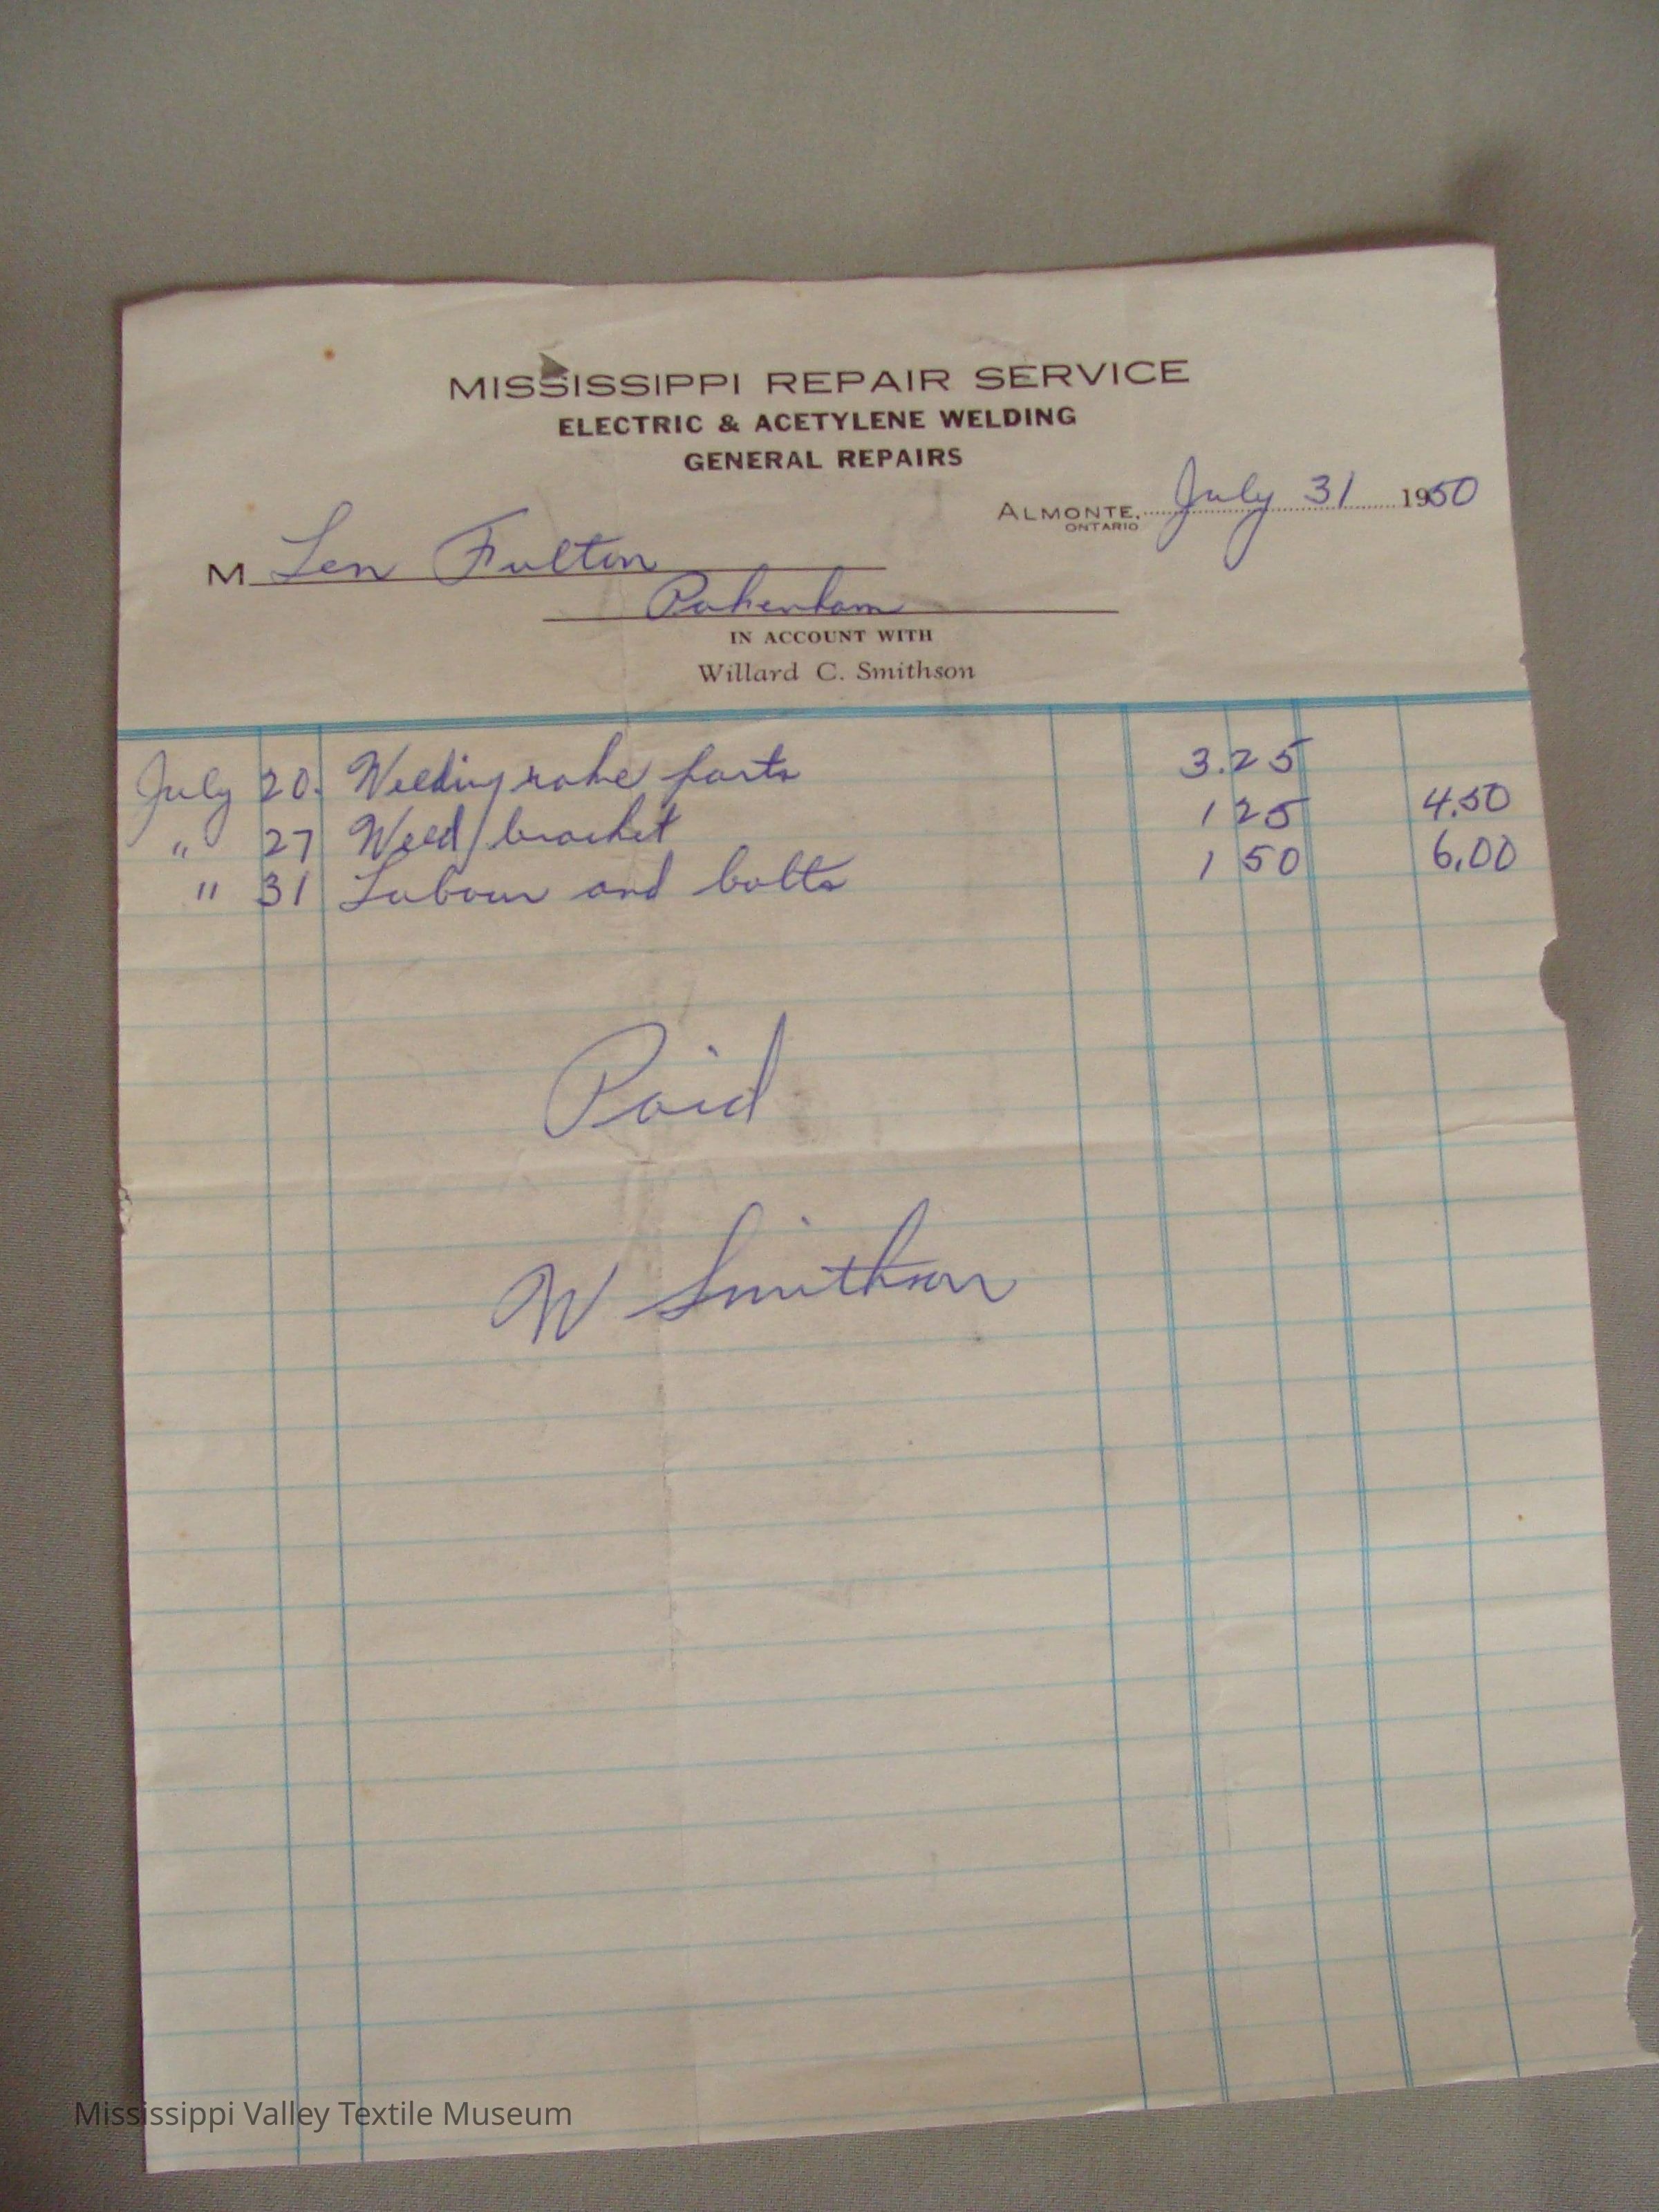 MISSISSIPPI REPAIR SERVICE
ELECTRIC & ACETYLENE WELDING
GENERAL REPAIRS
ALMONTE, ONTARIO July 31 1950
M Len Fulton
Pakenham
IN ACCOUNT WITH
Willard C. Smithson
July 20. Welding rake parts 3.25
" 27 Weld bracket 1 25 4.50
" 31 Labour and bolts 1 50 6.00
Paid
W Smithson
Mississippi Valley Textile Museum